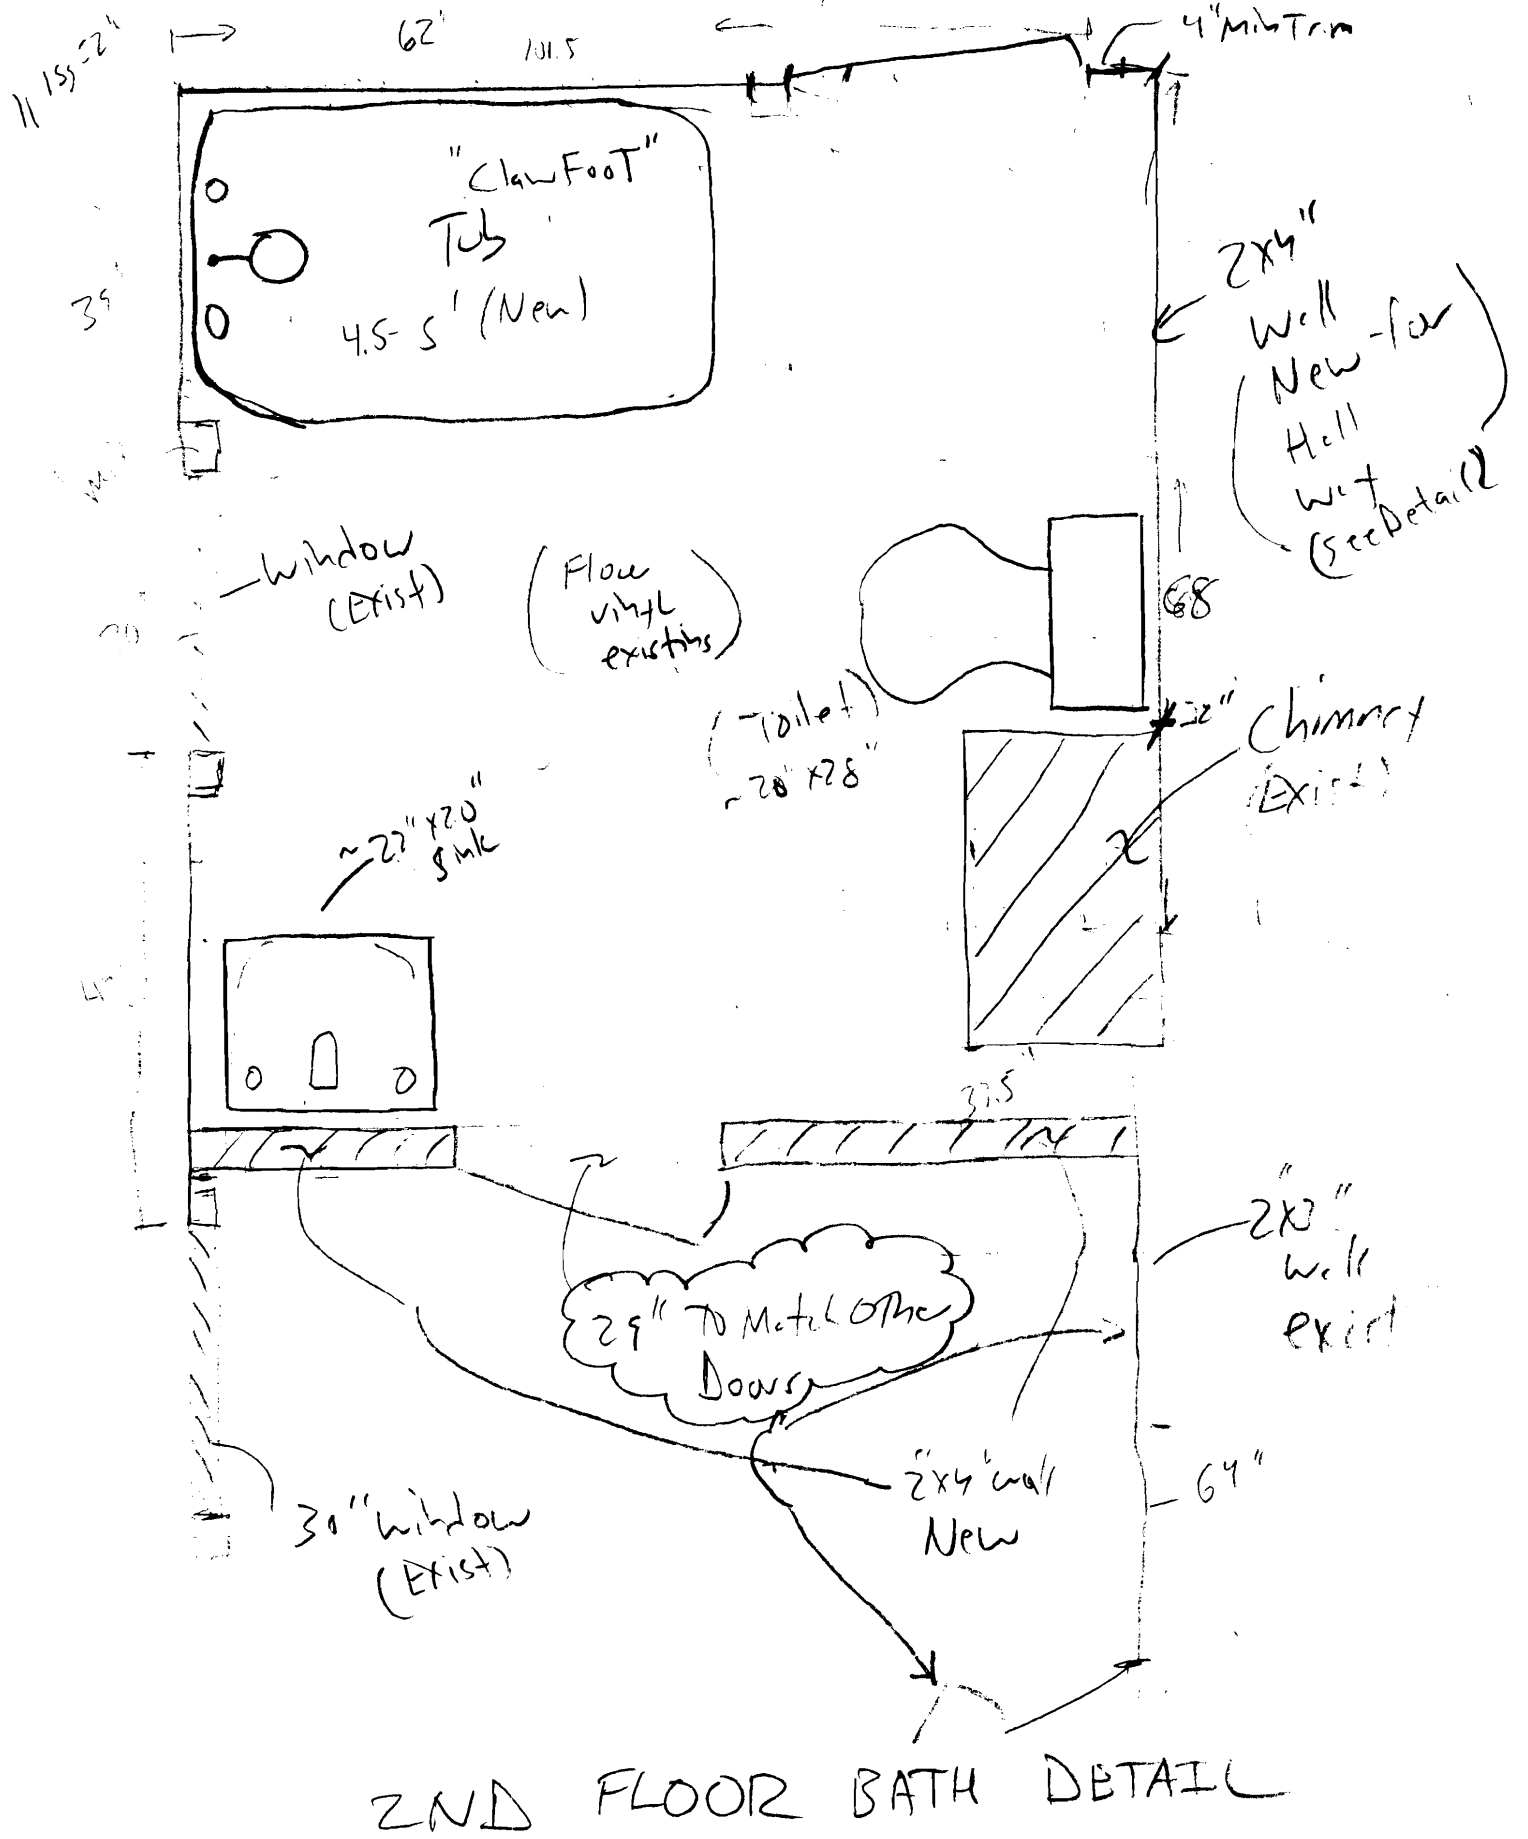 62'
101.5
4" Min Trim
"ClawFooT"
Tub
4.5-5' (New)
39"
2x4"
Wall
New -for
Hall
(see Detail 2
Window
(Exist)
(Floor
vinyl
existing)
68
(Toilet)
~20"x28"
32"
Chimney
(Exist)
~22"x20"
sink
37.5"
2x3"
Wall
exist
29" To Match Other
Doors
2x4" wall
New
64"
30" Window
(Exist)
2ND FLOOR BATH DETAIL